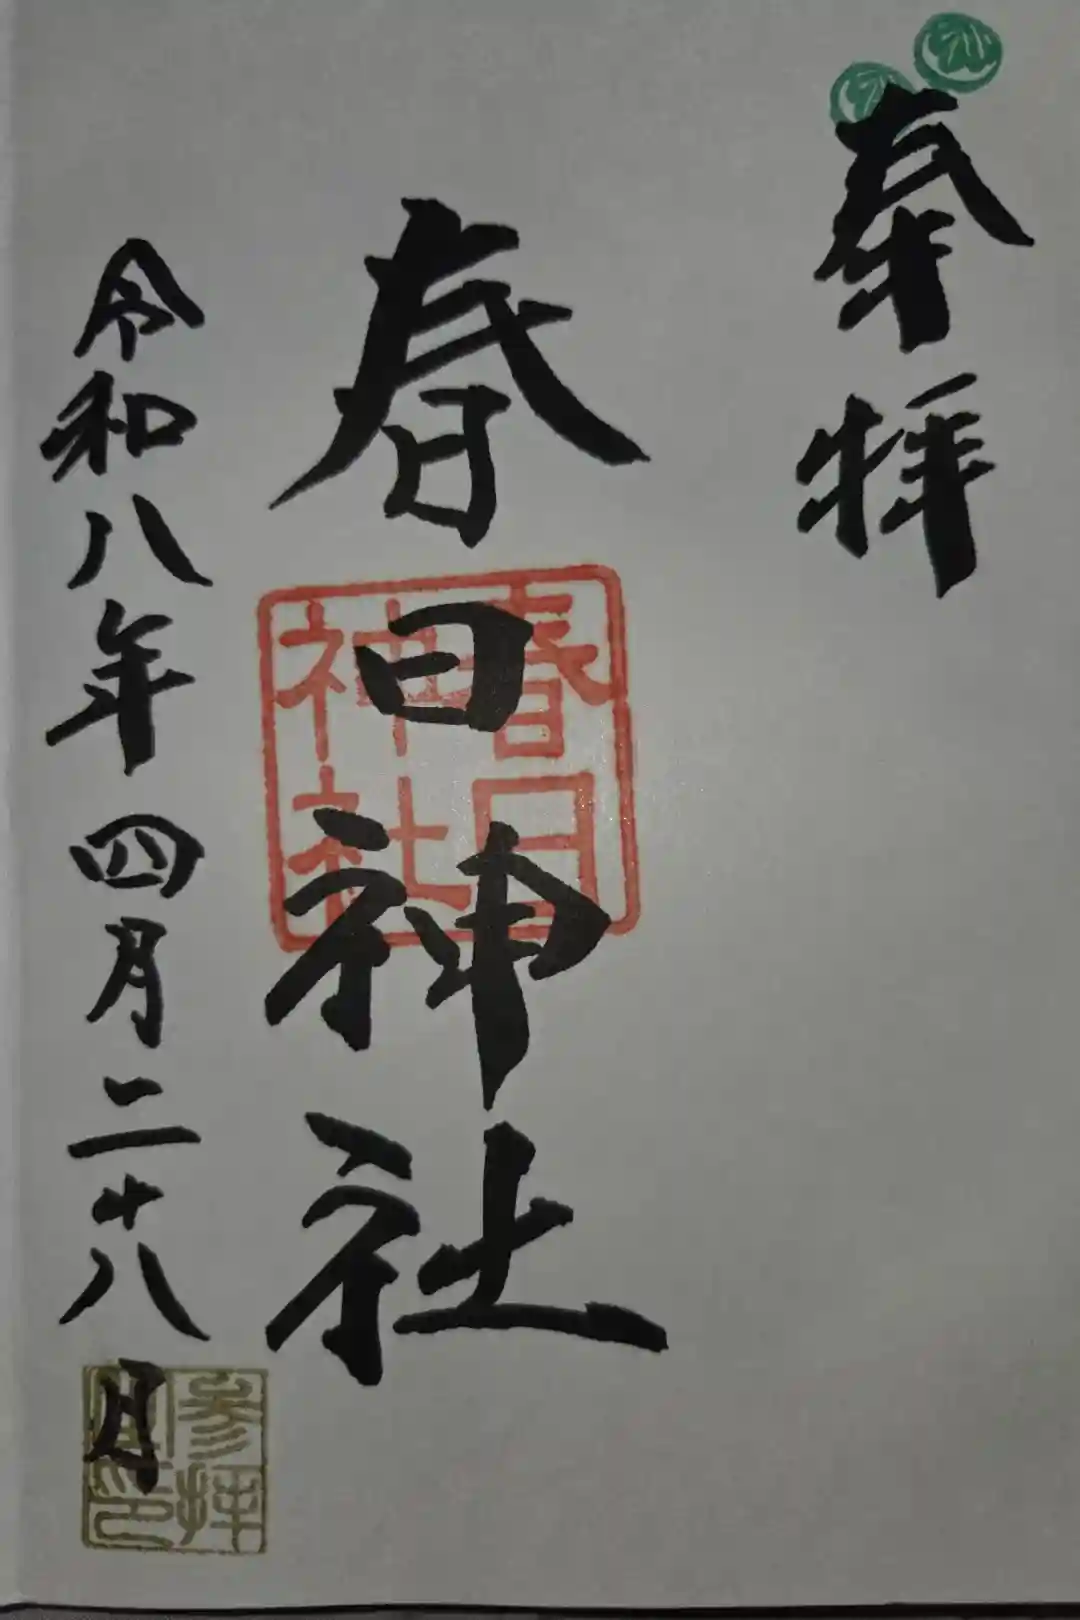 奉拝
春日神社
春日神社
令和八年四月二十八日
参拝